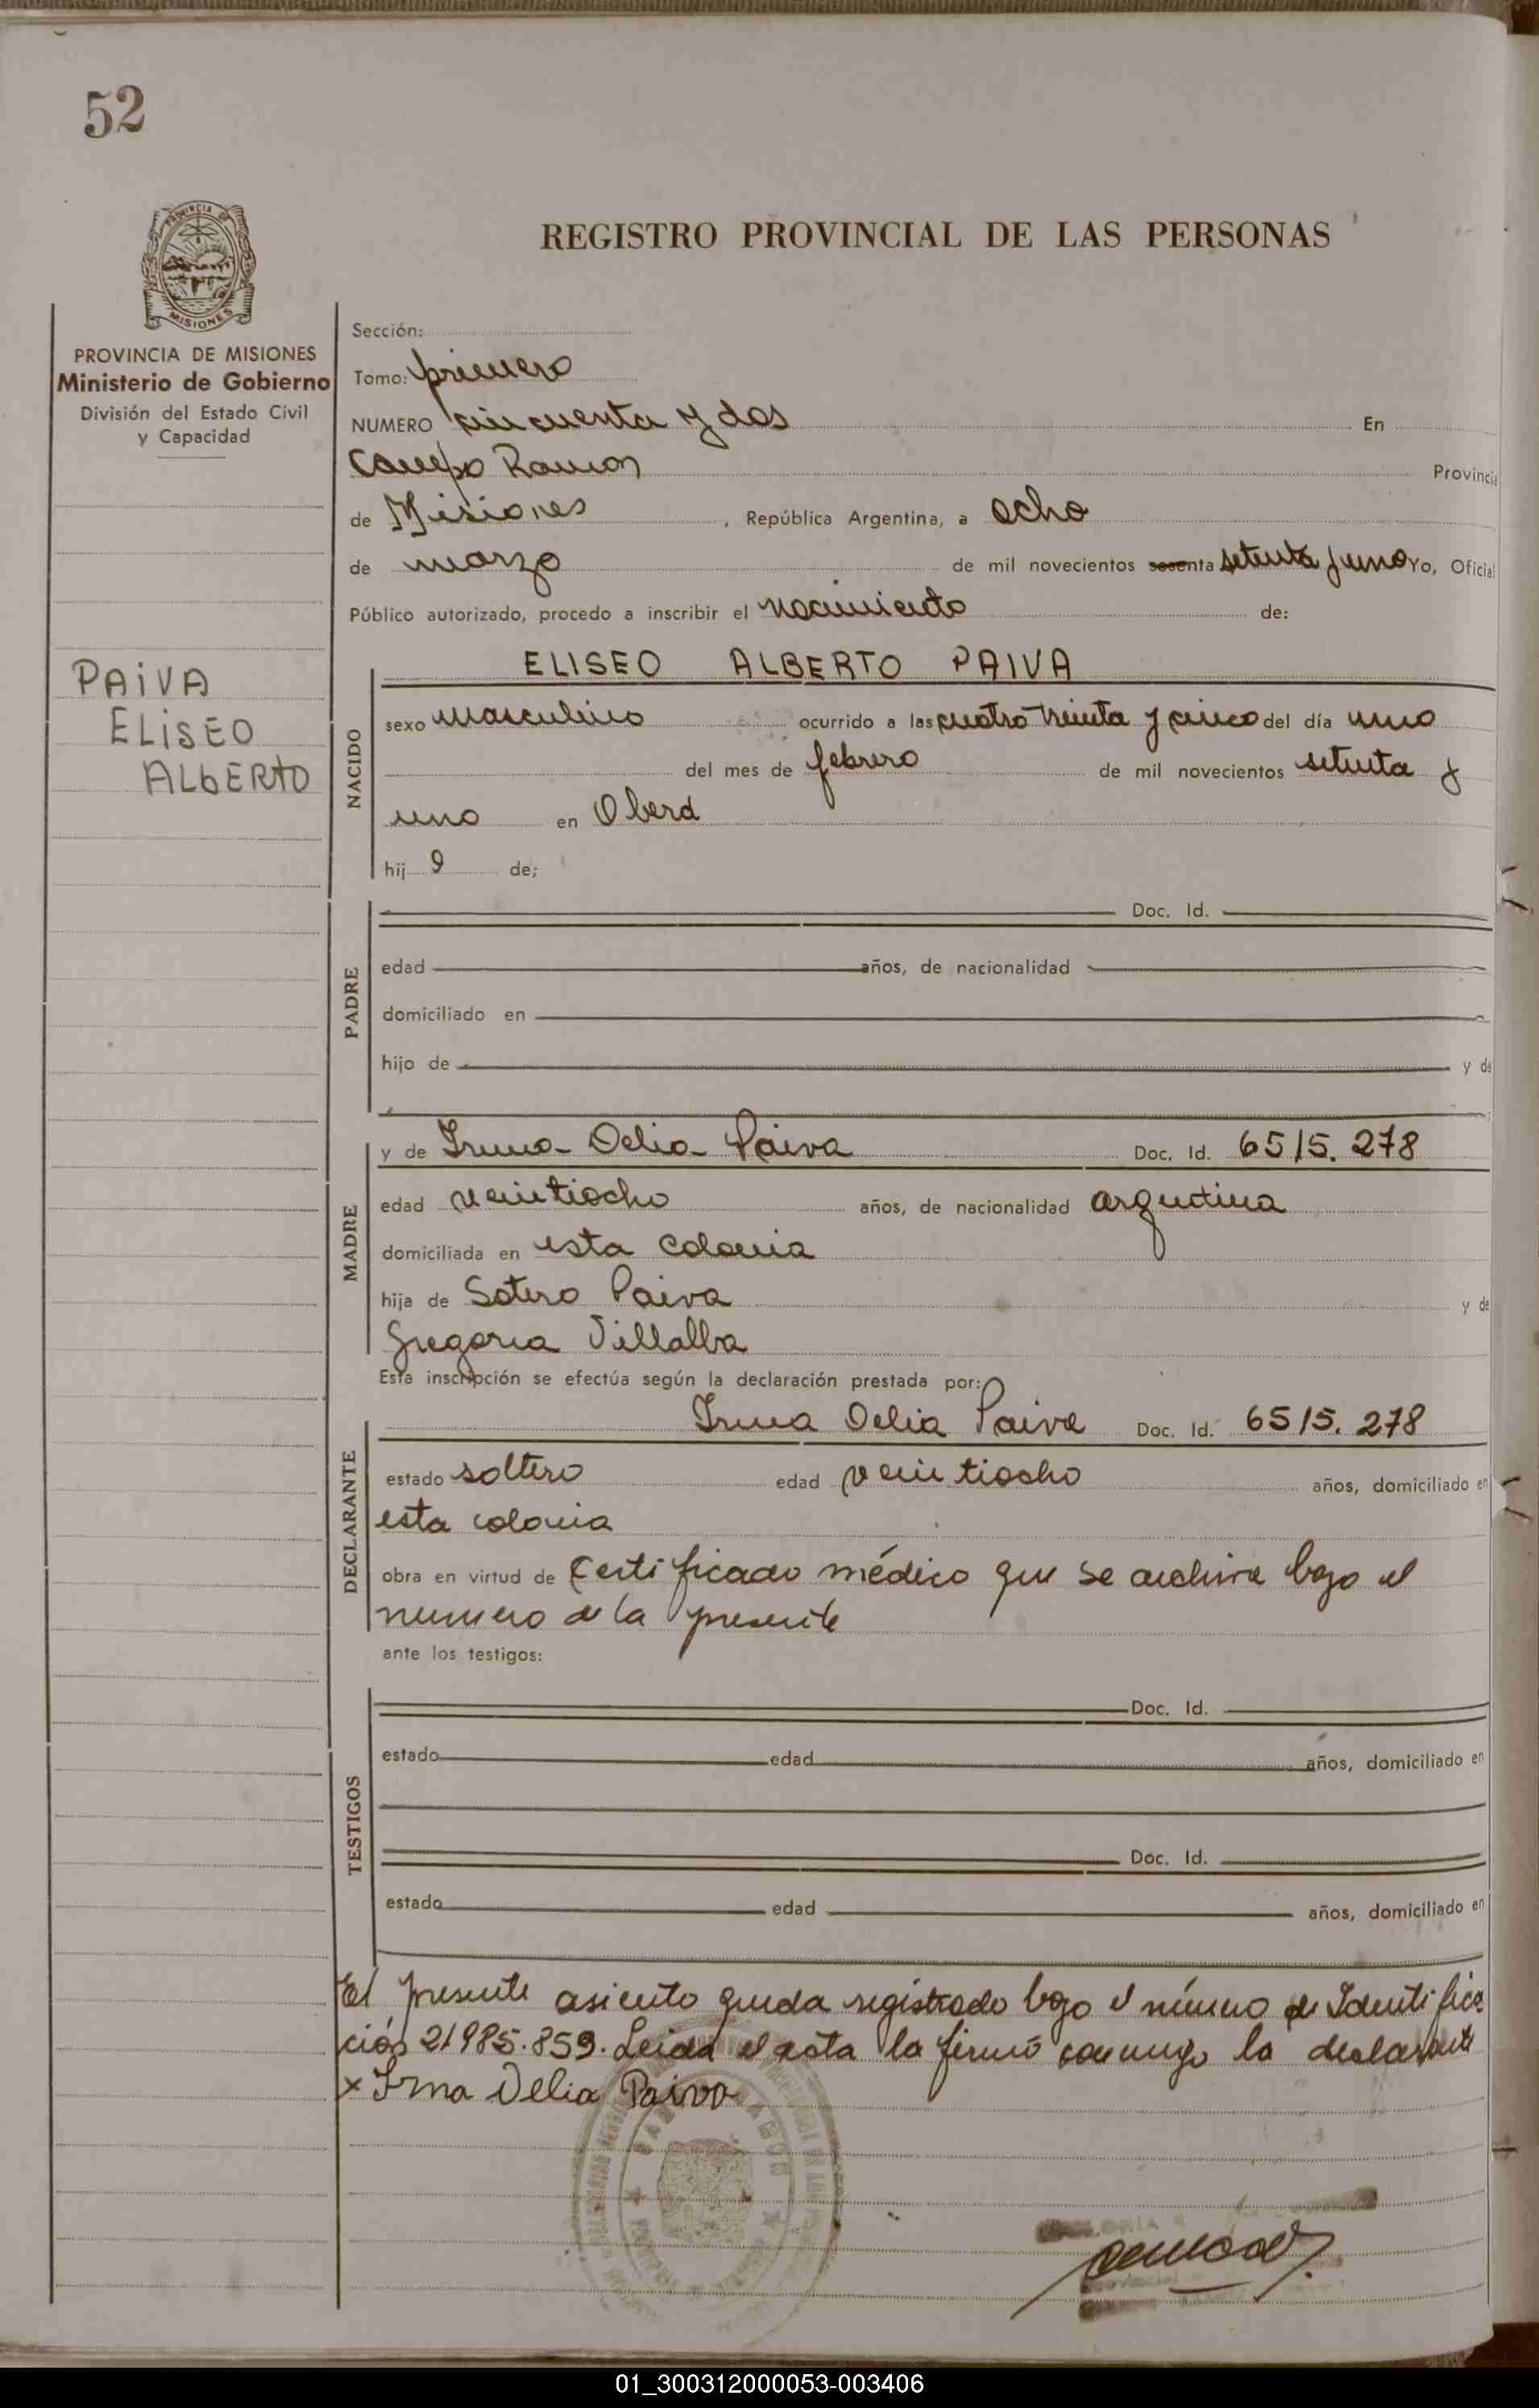 52
PROVINCIA DE
MISIONES
REGISTRO PROVINCIAL DE LAS PERSONAS
PROVINCIA DE MISIONES
Ministerio de Gobierno
División del Estado Civil
y Capacidad
PAIVA
ELISEO
ALBERTO
Sección:
Tomo: primero
NUMERO cincuenta y dos En
Campo Ramon Provincia
de Misiones, República Argentina, a ocho
de marzo de mil novecientos sesenta setenta y uno Yo, Oficial
Público autorizado, procedo a inscribir el nacimiento de:
NACIDO
ELISEO ALBERTO PAIVA
sexo masculino ocurrido a las cuatro treinta y cinco del día uno
del mes de febrero de mil novecientos setenta y
uno en Oberá
hijo de;
PADRE
Doc. Id.
edad años, de nacionalidad
domiciliado en
hijo de y de
MADRE
y de Irma Delia Paiva Doc. Id. 6515.278
edad veintiocho años, de nacionalidad argentina
domiciliada en esta colonia
hija de Sotero Paiva y de
Gregoria Villalba
Esta inscripción se efectúa según la declaración prestada por:
DECLARANTE
Irma Delia Paiva Doc. Id. 6515.278
estado soltero edad veintiocho años, domiciliado en
esta colonia
obra en virtud de certificado médico que se archiva bajo el
numero de la presente
ante los testigos:
TESTIGOS
Doc. Id.
estado edad años, domiciliado en
Doc. Id.
estado edad años, domiciliado en
El presente asiento queda registrado bajo el número de Identifica
ción 21985.859. Leida el acta la firmó conmigo la declarante
x Irma Delia Paiva
01_300312000053-003406